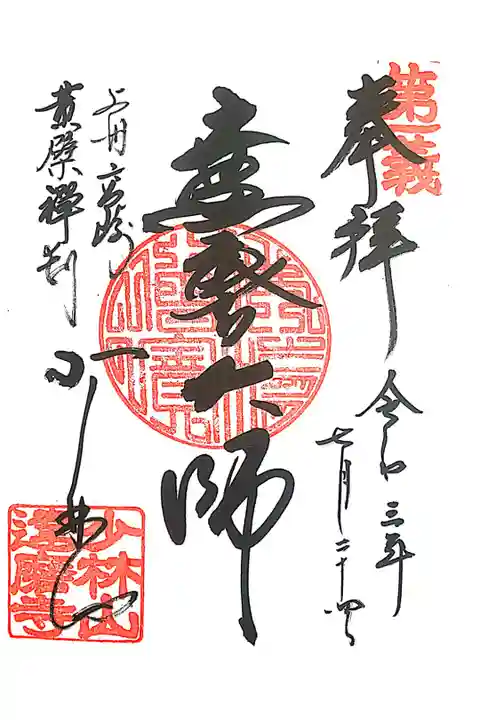 第一義
奉拝
令和三年
七月二十四日
達磨大師
上州高崎
黄檗禅刹
少林山
少林山
達磨寺